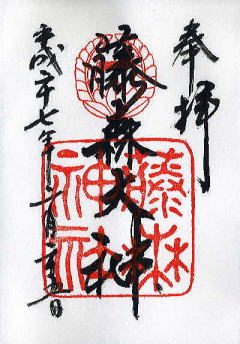 奉拝
藤森大神
平成二十七年 月 日
藤森
神社